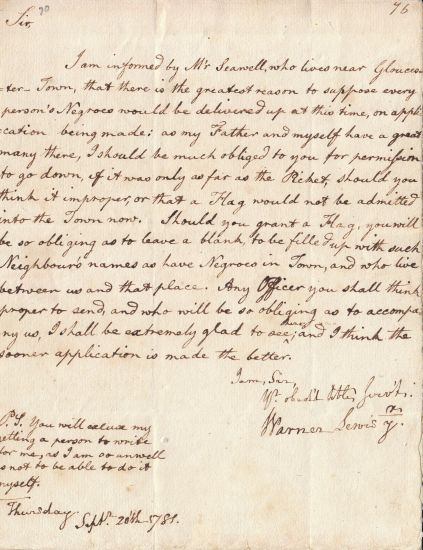 70
76
Sir,
I am informed by Mr Seawell, who lives near Glouces-
-ter Town, that there is the greatest reason to suppose every
person's Negroes would be delivered up at this time, on appli-
cation being made: as my Father and myself have a great
many there, I should be much obliged to you for permission
to go down, if it was only as far as the Picket, should you
think it improper, or that a Flag would not be admitted
into the Town now. Should you grant a Flag, you will
be so obliging as to leave a blank, to be filled up with such
Neighbour's names as have Negroes in Town, and who live
between us and that place. Any Officer you shall think
proper to send, and who will be so obliging as to accompa
ny us, I shall be extremely glad to see here; and I think the
sooner application is made the better.
I am, Sir
Yr. obed't Hble Serv't.
Warner Lewis Jr.
P.S. You will excuse my
getting a person to write
for me, as I am so unwell
as not to be able to do it
myself.
Thursday. Sept. 20th 1781.